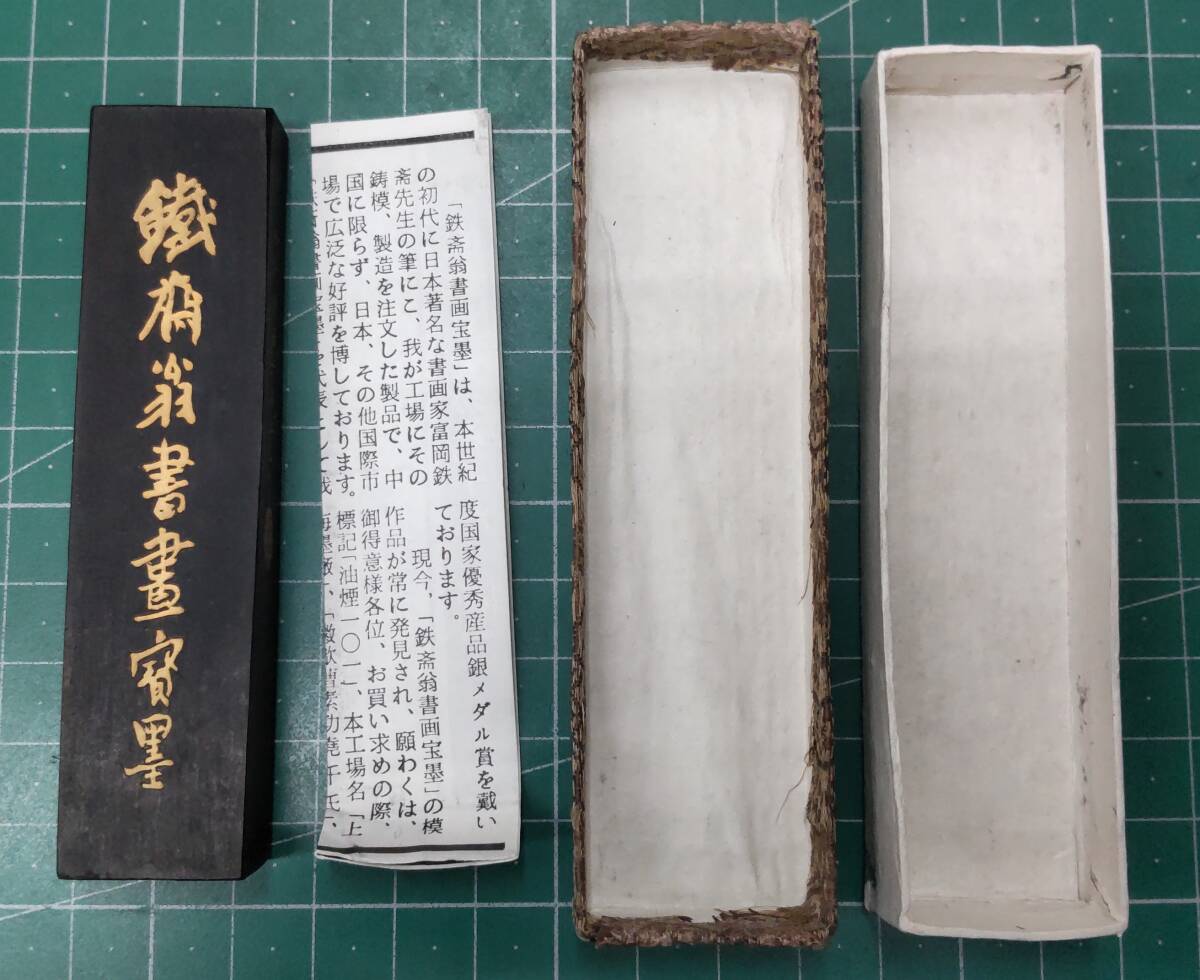 鐵斎翁書畫寶墨
「鉄斎翁書画宝墨」は、本世紀
の初代に日本著名な書画家富岡鉄
斎先生の筆にこ、我が工場にその
鋳模、製造を注文した製品で、中
国に限らず、日本、その他国際市
場で広泛な好評を博しております。
度国家優秀産品銀メダル賞を戴い
ております。
現今、「鉄斎翁書画宝墨」の模
作品が常に発見され、願わくは、
御得意様各位、お買い求めの際、
標記「油煙一〇一」、本工場名「上